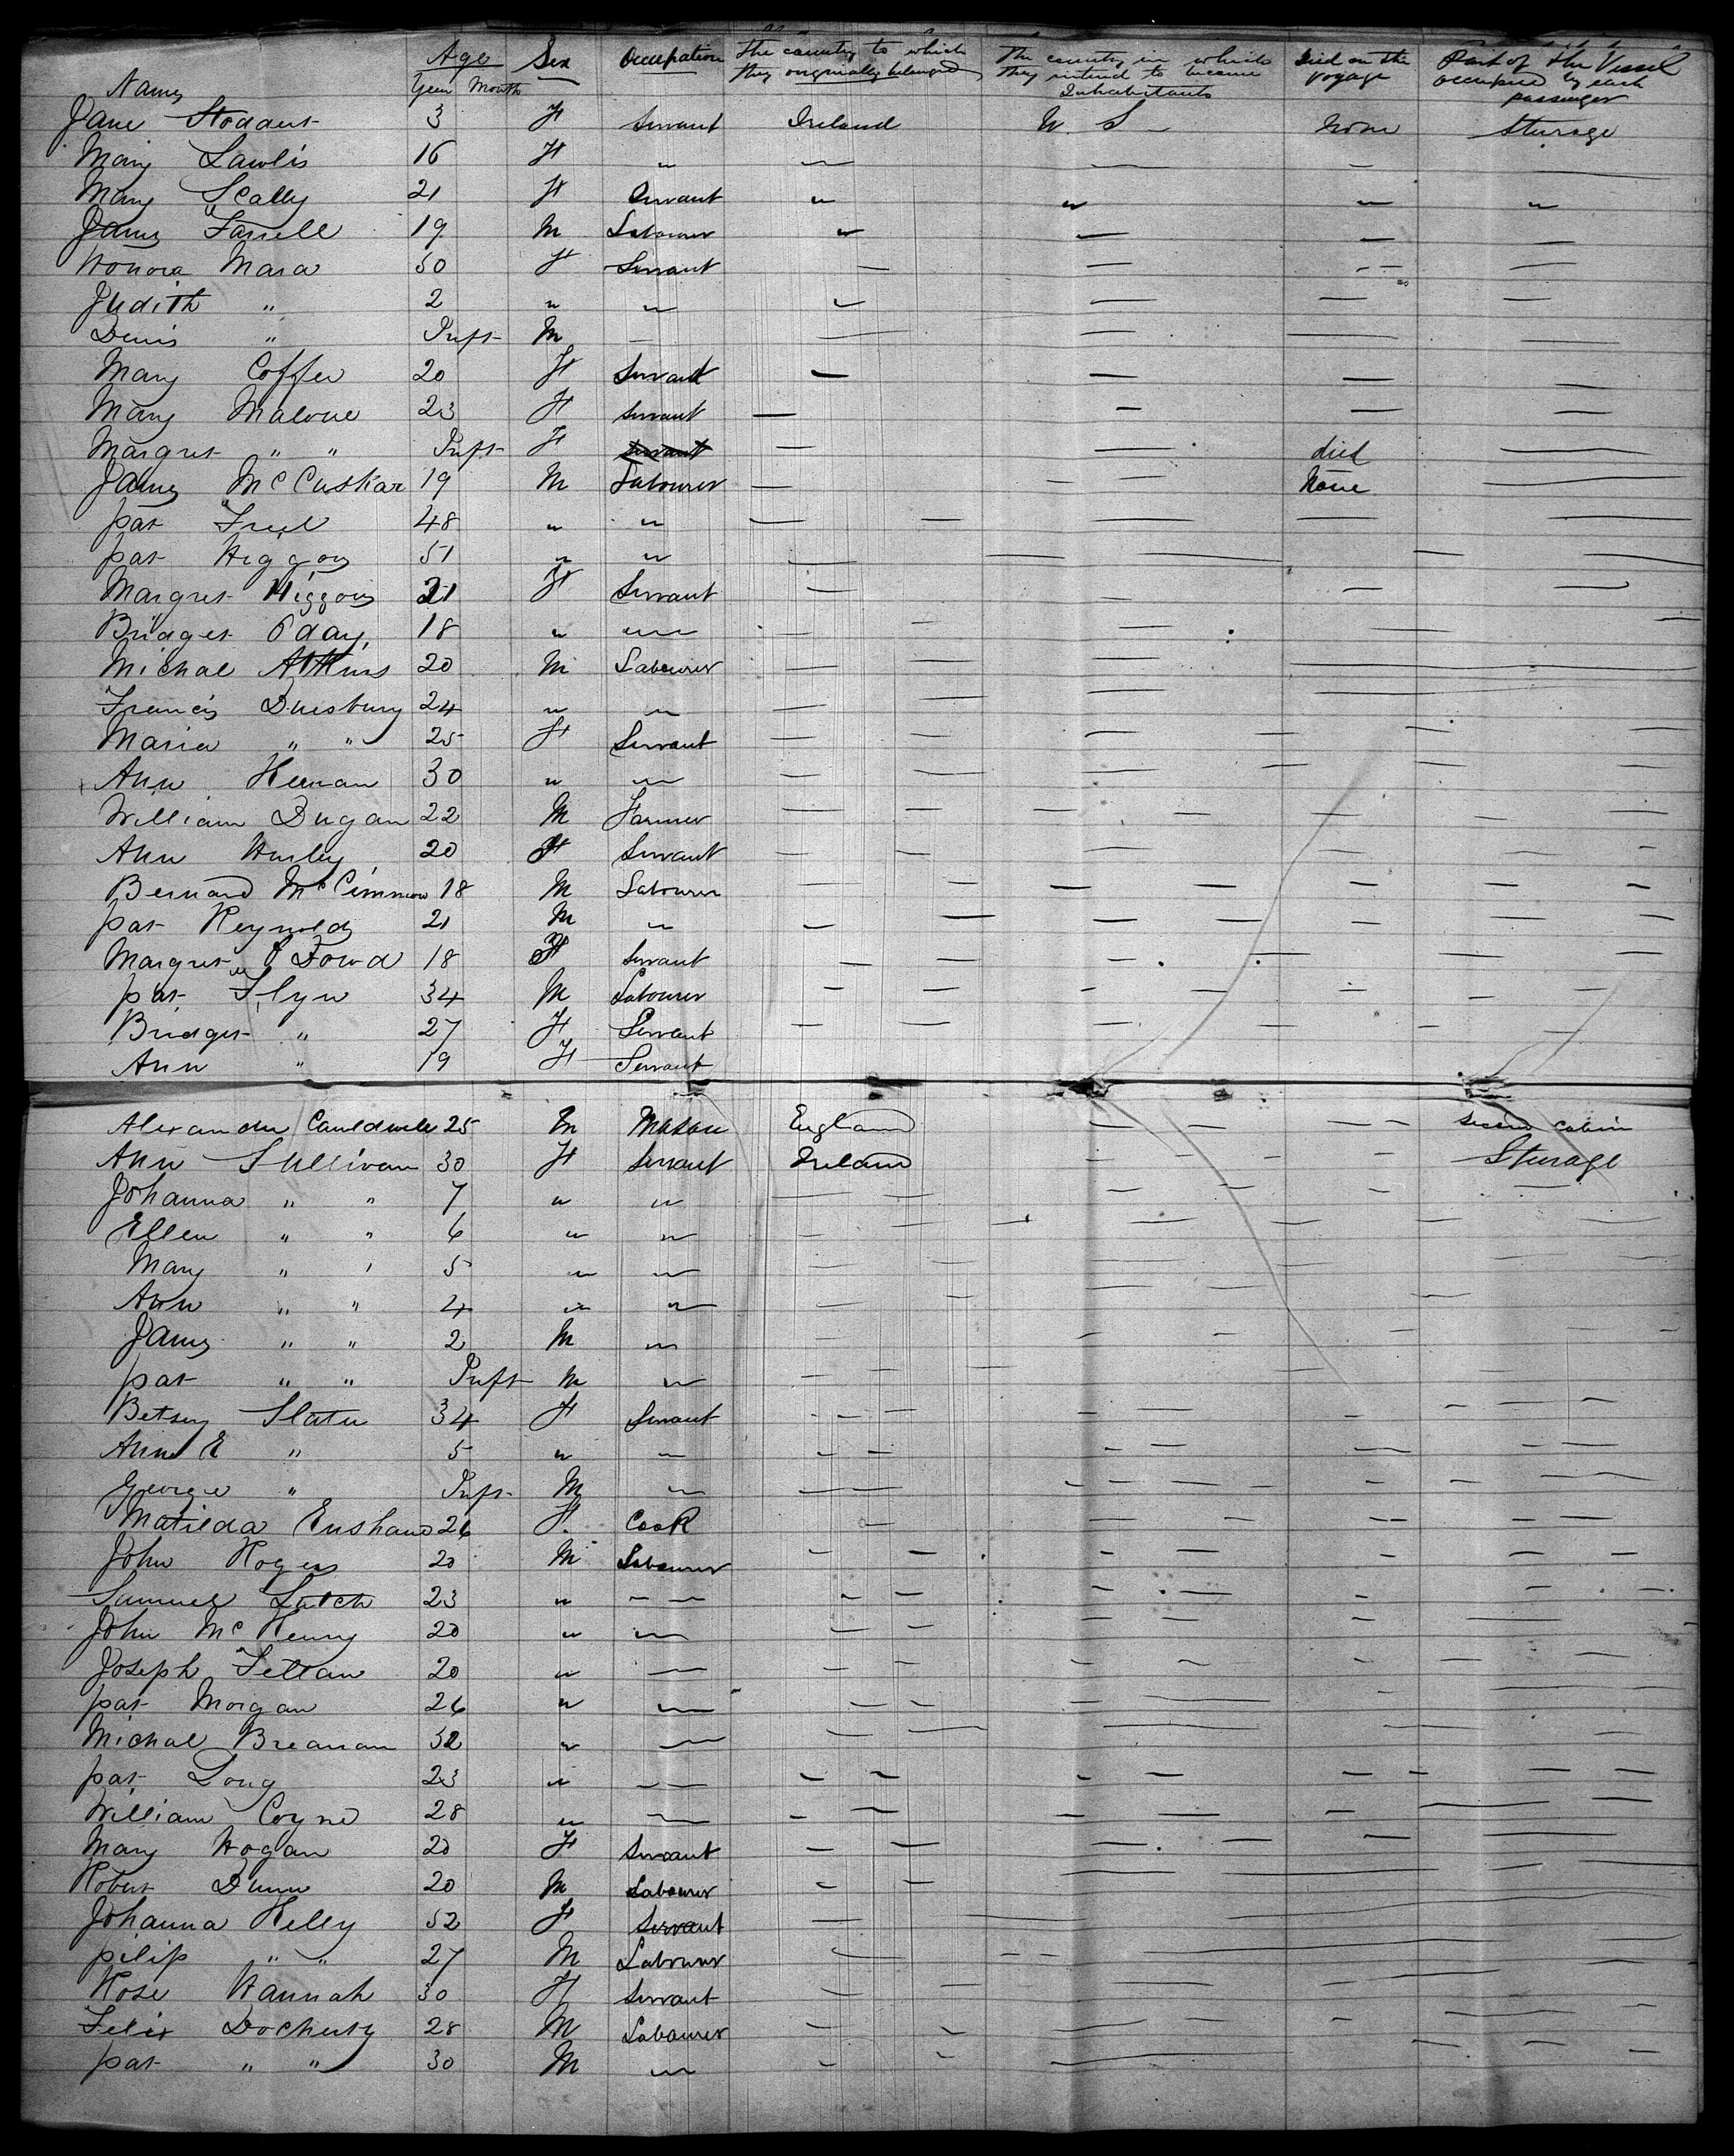 Names Age Year Month Sex Occupation The country to which they originally belonged The country in which they intend to become Inhabitants Died on the voyage Part of the Vessel occupied by each passenger
Jane Stodart 3 F Servant Ireland U. S None Sturage
Mary Lawlis 16 F "
Mary Scally 21 F Servant " " " "
James Farrell 19 M Labourer "
Honora Mara 50 F Servant
Judith " 2 " " "
Denis " Inft M
Mary Coffee 20 F Servant
Mary Malone 23 F Servant
Margret " " Inft F Servant died
James McCuskar 19 M Labourer None
pat Freel 48 " "
pat Higgons 51 " "
Margret Higgons 21 F Servant
Bridget Oday 18 " "
Michal Atkins 20 M Labourer
Francis Duesbury 24 " "
Maria " " 25 F Servant
Ann Heenan 30 " "
William Dugan 22 M Farmer
Ann Hurley 20 F Servant
Bernard McCimmon 18 M Labourer
pat Reynolds 21 M "
Margret O Dowd 18 F Servant
pat Flyn 34 M Labourer
Bridget " 27 F Servant
Ann " 19 F Servant
Alexander Cauldwell 25 M Mason England second cabin
Ann Sullivan 30 F Servant Ireland Sturage
Johanna " " 7 " "
Ellen " " 6 " "
Mary " " 5 " "
Ann " " 4 " "
James " " 2 M "
pat " " Inft M "
Betsey Slater 34 F Servant
Ann E " 5 "
George " Inft M "
Matilda 26 F. Cook
John Rogers 20 M Labourer
Samuel 23 "
John McHenry 20 " "
Joseph 20 "
pat Morgan 26 " "
Michal Breanan 32 "
pat Long 23 "
William Coyne 28 "
Mary Hogan 20 F Servant
Robert Dunn 20 M Labourer
Johanna Kelly 52 F Servant
pilip " " 27 M Labourer
Rose Hannah 30 F Servant
Felix Docherty 28 M Labourer
pat " " 30 M "